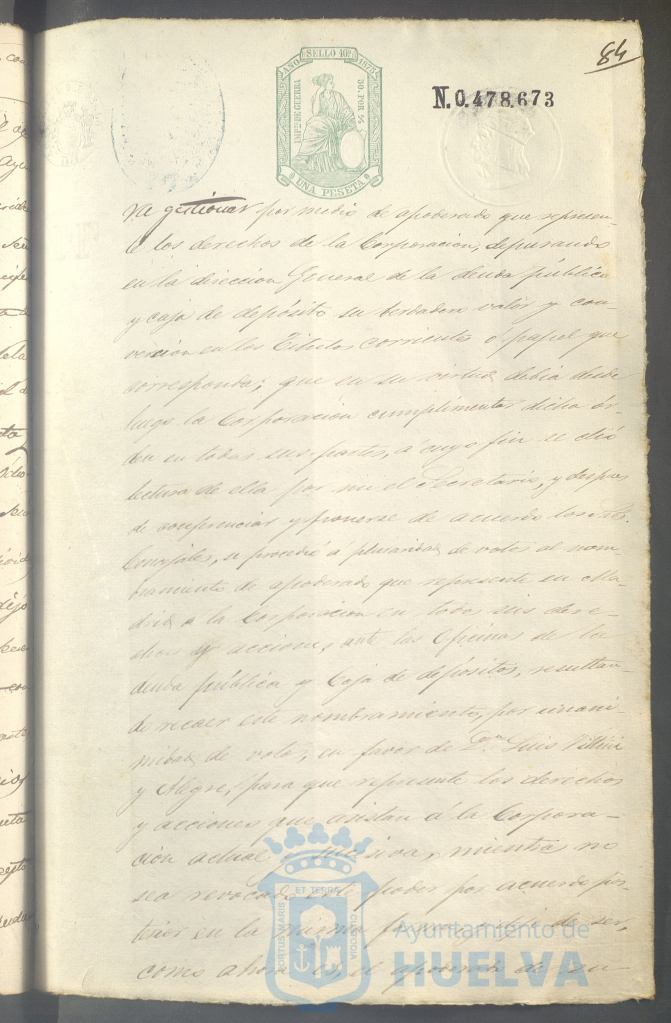 84
AÑO SELLO 10º 1875
IMPto DE GUERRA
50 POR %
UNA PESETA
N. 0.478,673
de gestionar por medio de apoderado que represen-
te los derechos de la Corporacion, depurando
en la direccion General de la deuda pública
y caja de depósito su verdadero valor y con-
version en los Titulos corrientes o papel que
corresponda; que en su virtud debia desde
luego la Corporación cumplimentar dicha ór-
den en todas sus partes, á cuyo fin se dió
lectura de ella por mi el Secretario, y despues
de conferenciar y ponerse de acuerdo los Sres.
Concejales, se procedió á pluralidad de votos al nom-
bramiento de apoderado que represente en Ma-
drid a la Corporacion en todos sus dere-
chos y acciones, ante las Oficinas de la
deuda pública y Caja de depósitos, resultan-
do recaer este nombramiento, por unani-
midad de votos, en favor de Dn. Luis
y Alegre, para que represente los derechos
y acciones que asistan á la Corpora-
cion actual y sucesivas, mientras no
sea revocado este poder por acuerdo pos-
terior en la misma forma
como ahora es, el apoderado de su
PORTUS MARIS ET TERRE CUSTODIA
Ayuntamiento de
HUELVA